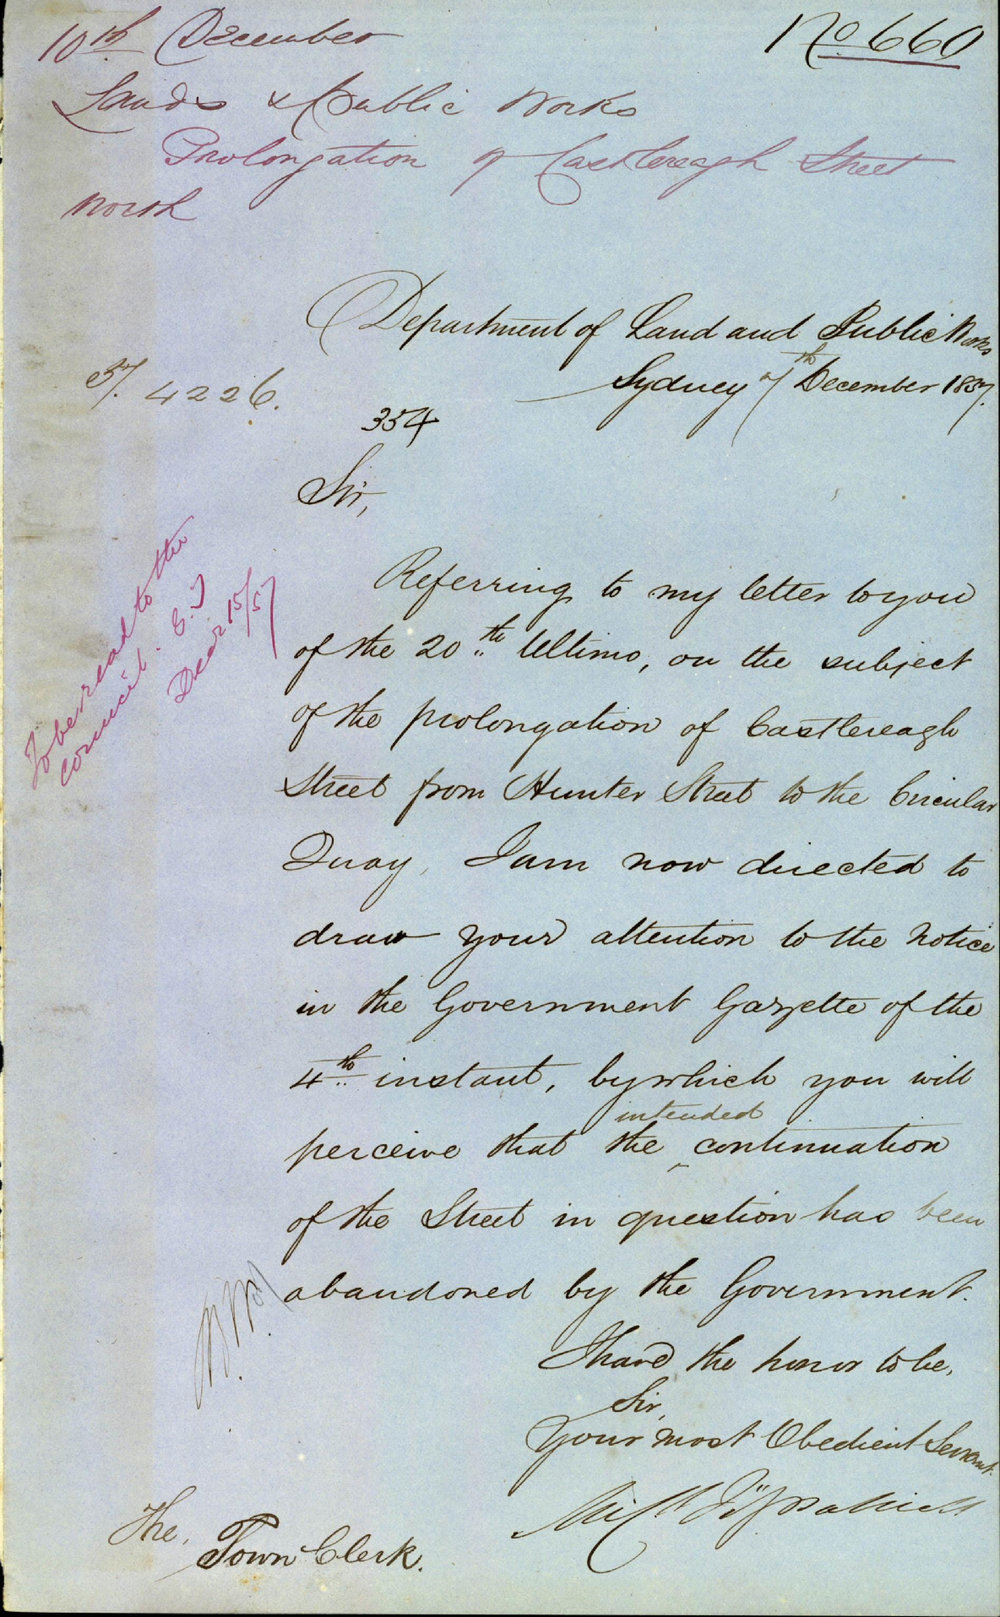 10th December
No 660
Lands & Public Works
Prolongation of Castlereagh Street
North
Department of Land and Public Works
Sydney 7th December 1857.
57. 4226.
354
Sir,
To be read to the
Council. E.T
Decr 15/57
Referring to my letter to you
of the 20th Ultimo, on the subject
of the prolongation of Castlereagh
Street from Hunter Street to the Circular
Quay, I am now directed to
draw your attention to the notice
in the Government Gazette of the
4th instant, by which you will
perceive that the intended continuation
of the Street in question has been
abandoned by the Government.
I have the honor to be,
Sir,
Your most Obedient Servant.
Michl Fitzpatrick
The,
Town Clerk.